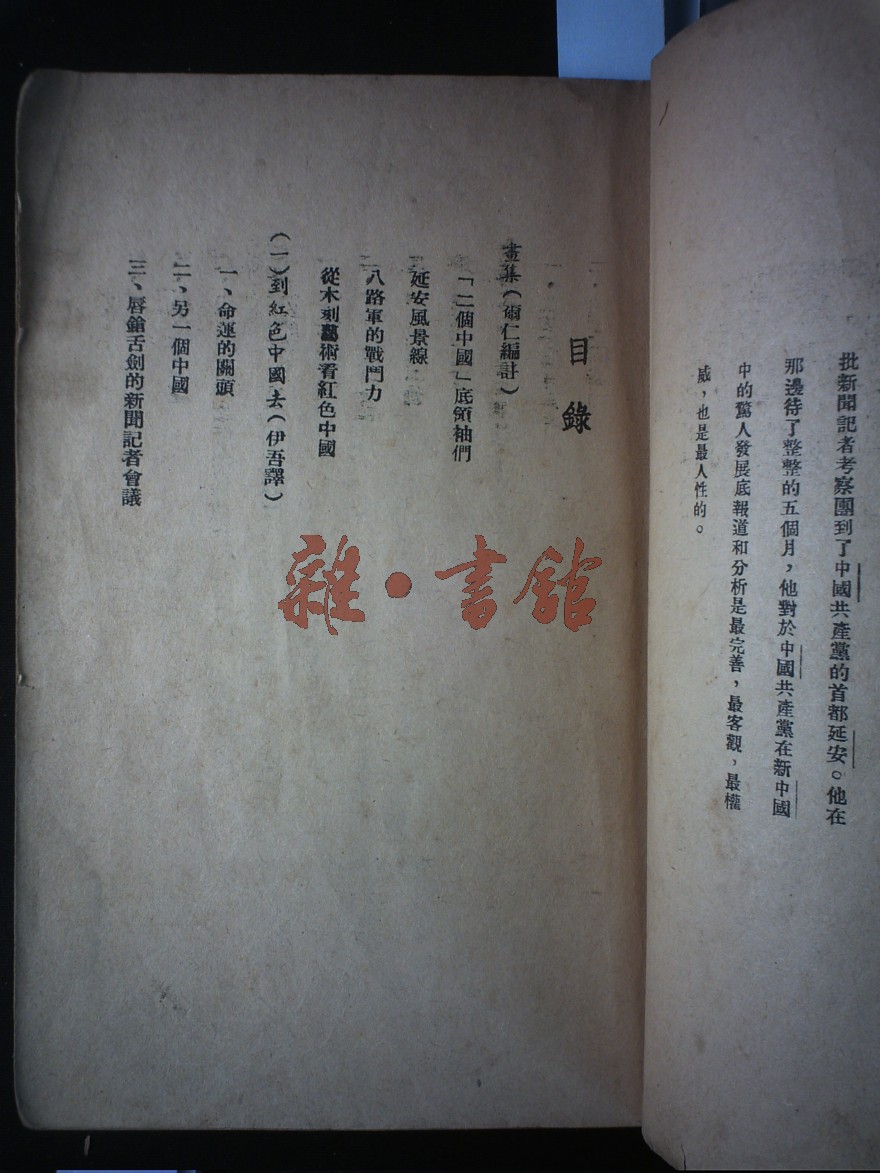 批新聞記者考察團到了中國共產黨的首都延安。他在
那邊待了整整的五個月，他對於中國共產黨在新中國
中的驚人發展底報道和分析是最完善，最客觀，最權
威，也是最人性的。
目錄
畫集（爾仁編註）
「二個中國」底領袖們
延安風景線
八路軍的戰鬥力
從木刻藝術看紅色中國
（一）到紅色中國去（伊吾譯）
一、命運的關頭
二、另一個中國
三、唇鎗舌劍的新聞記者會議
雜·書館